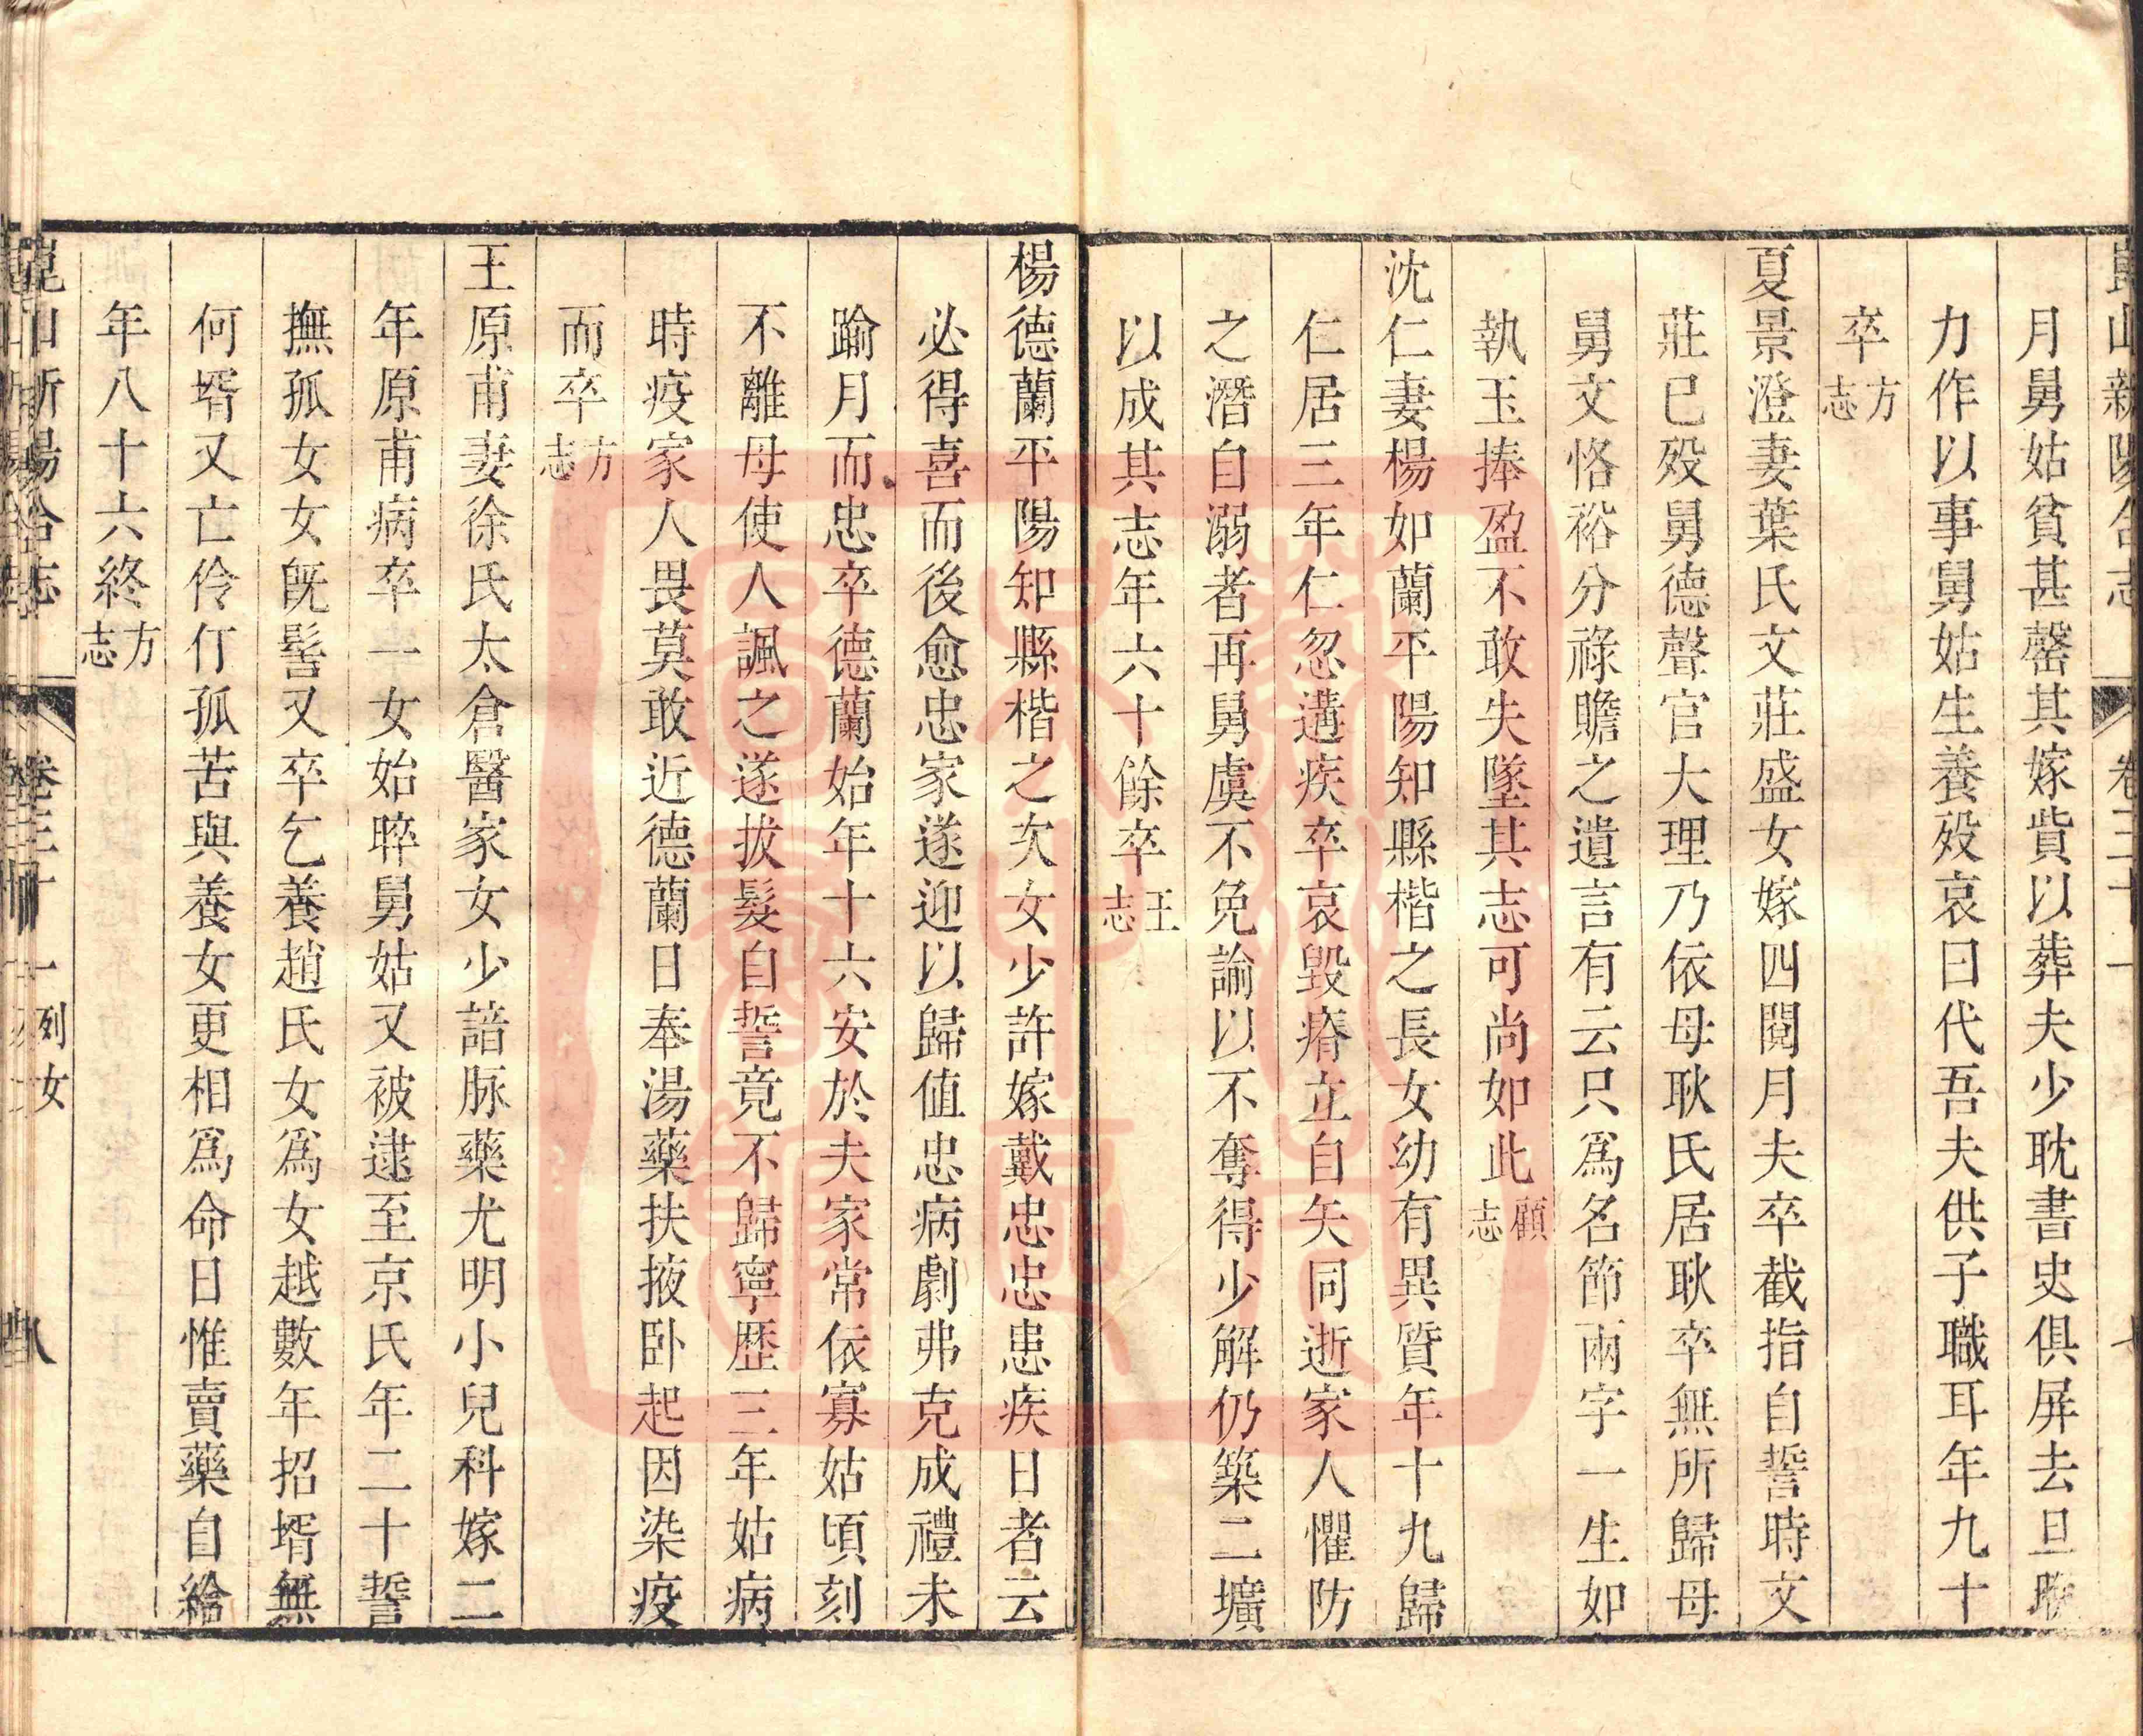 崑山新陽合志 卷三十一
月舅姑貧甚罄其嫁貲以葬夫少耽書史俱屏去旦晩
力作以事舅姑生養殁哀曰代吾夫供子職耳年九十
卒方志
夏景澄妻葉氏文莊盛女嫁四閱月夫卒截指自誓時文
莊已殁舅德聲官大理乃依母耿氏居耿卒無所歸母
舅文恪裕分祿贍之遺言有云只爲名節兩字一生如
執玉捧盈不敢失墜其志可尚如此顧志
沈仁妻楊如蘭平陽知縣楷之長女幼有異質年十九歸
仁居三年仁忽遘疾卒哀毀瘠立自矢同逝家人懼防
之潛自溺者再舅虞不免諭以不奪得少解仍築二壙
以成其志年六十餘卒王志
楊德蘭平陽知縣楷之次女少許嫁戴忠忠患疾日者云
必得喜而後愈忠家遂迎以歸値忠病劇弗克成禮未
踰月而忠卒德蘭始年十六安於夫家常依寡姑頃刻
不離母使人諷之遂拔髮自誓竟不歸寧歷三年姑病
時疫家人畏莫敢近德蘭日奉湯藥扶掖卧起因染疫
而卒方志
王原甫妻徐氏太倉醫家女少諳脉藥尤明小兒科嫁二
年原甫病卒一女始晬舅姑又被逮至京氏年二十誓
撫孤女女旣髻又卒乞養趙氏女爲女越數年招壻無
何壻又亡伶仃孤苦與養女更相爲命日惟賣藥自給
年八十六終方志
崑山新陽合志 卷三十一 列女 八